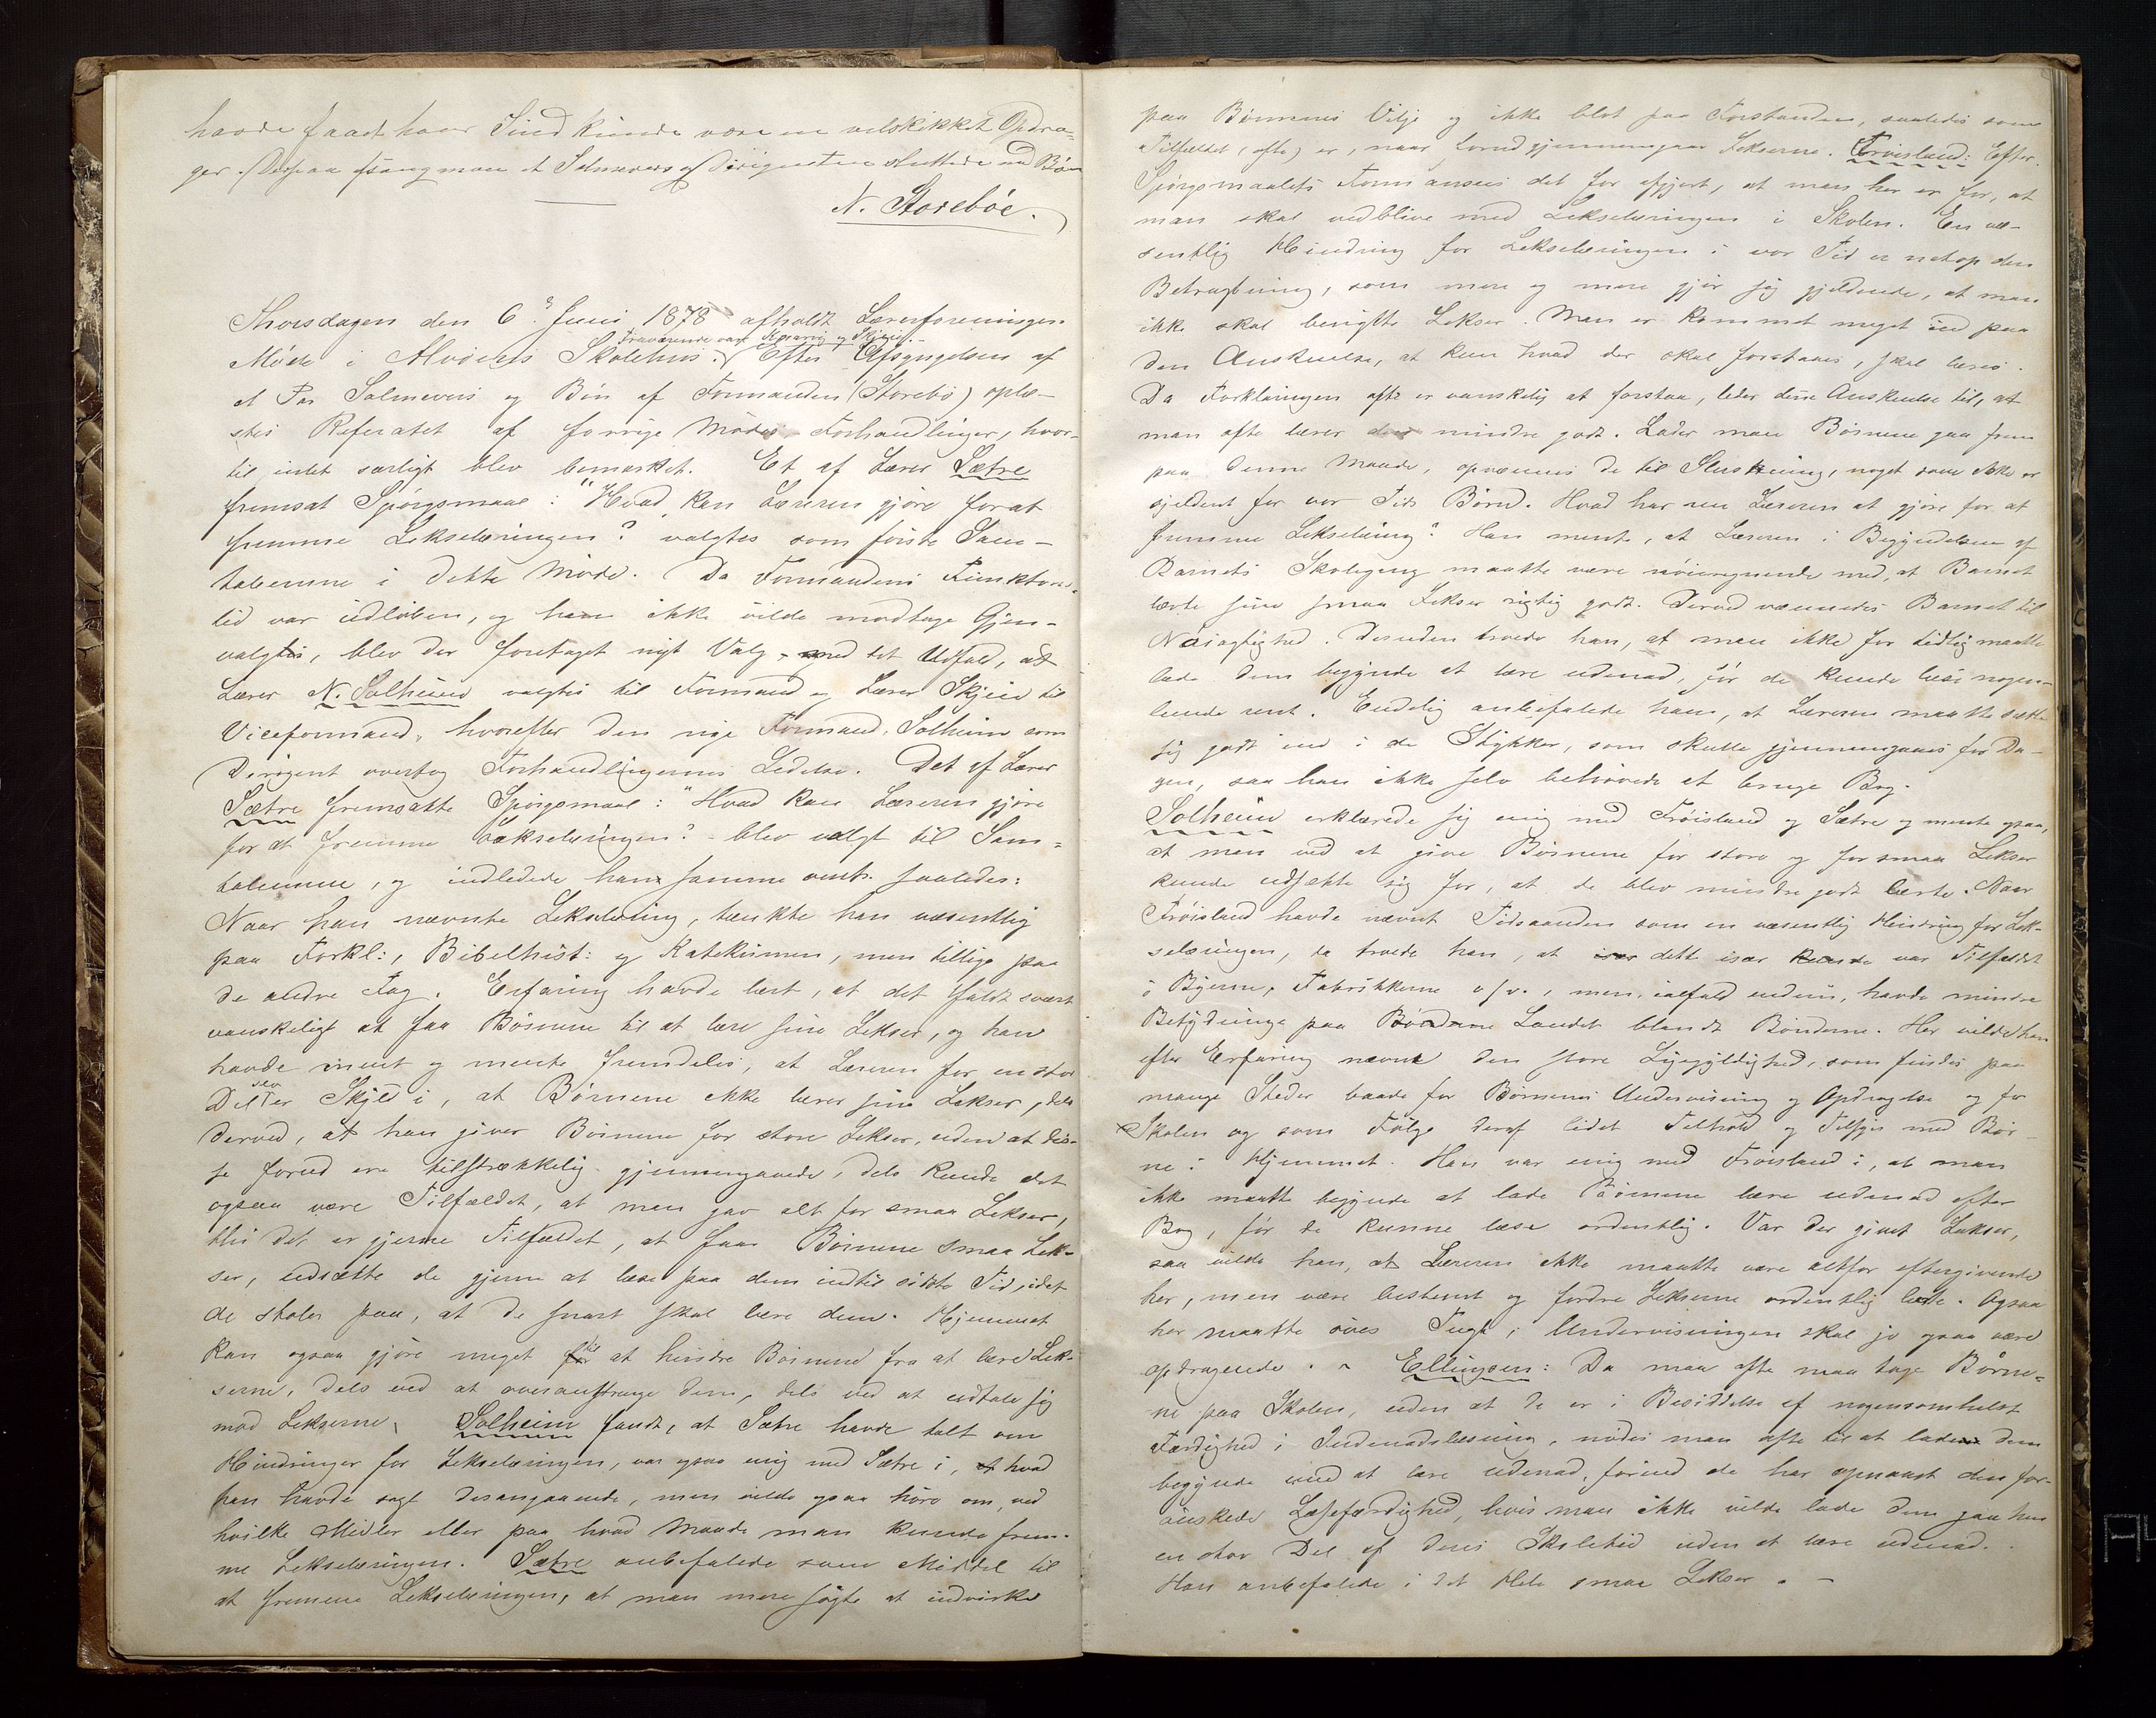 havde faaet haar Sind kunde være en velskikket Opdra-
ger. Derpaa sang man et Salmevers og Dirigenten sluttede med Bøn
N. Storebøe.
Thorsdagen den 6te Juni 1878 afholdt Lærerforeningen
Fraværende var og Skjeie.
Møde i Alvøens Skolehus. Efter Afsyngelsen af
et Par Salmevers og Bøn af Formanden (Storebø) oplæ-
stes Referatet af forrige Mødes Forhandlinger, hvor-
til intet særligt blev bemærket. Et af Lærer Sætre
fremsat Spørgsmaal: "Hvad kan Læreren gjøre forat
fremme Lekselæringen? valgtes som første Sam-
taleemne i dette Møde. Da Formandens Funktions-
tid var udløben, og han ikke vilde modtage Gjen-
valgtes, blev der foretaget nyt Valg, med det Udfald, at
Lærer N. Solheim valgtes til Formand og Lærer Skjeie til
Viceformand, hvorefter den nye Formand, Solheim som
Dirigent overtog Forhandlingernes Ledelse. Det af Lærer
Sætre fremsatte Spørgsmaal: "Hvad kan Læreren gjøre
for at fremme Lækselæringen? - blev valgt til Sam-
taleemne, og indledede han samme omtr. saaledes:
Naar han nævnte Lekselæring, tænkte han væsentlig
paa Forkl:, Bibelhist: og Katekismen, men tillige paa
de andre Fag. Erfaring havde lært, at det faldt svært
vanskeligt at faa Børnene til at lære sine Lekser, og han
havde ment og mente fremdeles, at Læreren for en stor
Del selv er Skyld i, at Børnene ikke lærer sine Lekser, dels
derved, at han giver Børnene for store Lekser, uden at dis-
se forud ere tilstrækkelig gjennemgaaede, dels kunde det
ogsaa være Tilfældet, at man gav alt for smaa Lekser,
thi det er gjerne Tilfældet, at faar Børnene smaa Lek-
ser, udsætte de gjerne at læse paa dem indtil sidste Tid, idet
de stoler paa, at de snart skal lære dem. Hjemmet
kan ogsaa gjøre meget til at hindre Børnene fra at lære Lek-
serne, dels ved at overanstrenge dem, dels ved at udtale sig
mod Lekserne. Solheim fandt, at Sætre havde talt om
Hindringer for Lekselæringen, var ogsaa enig med Sætre i, hvad
han havde sagt desangaaende, men vilde ogsaa høre om, ved
hvilke Midler eller paa hvad Maade man kunde frem-
me Lekselæringen. Sætre anbefalede som Middel til
at fremme Lekselæringen, at man mere søgte at indvirke
paa Børnenes Vilje og ikke blot paa Forstanden, saaledes som
Tilfældet (ofte) er, naar Lærer gjennemgaar Lekserne. Frøisland: Efter
Spørgsmaalets Form ansees det for afgjort, at man her er for, at
man skal vedblive med Lekselæringen i Skolen. En væ-
sentlig Hindring for Lekselæringen i vor Tid er netop den
Betragtning, som mere og mere gjør sig gjeldende, at man
ikke skal benytte Lekser. Man er kommet meget ind paa
den Anskuelse, at kun hvad der skal forstaaes, skal læres.
Da Forklaringen ofte er vanskelig at forstaa, leder denne Anskuelse til, at
man ofte lærer den mindre godt. Lader man Børnene gaa frem
paa denne Maade, opvænnes de til Slurskning, noget som ikke er
sjeldent for vor Tids Børn. Hvad har nu Læreren at gjøre for at
fremme Lekselæring? Han mente, at Læreren i Begyndelsen af
Barnets Skolegang maatte være nøieregnende med, at Barnet
lærte sine smaa Lekser rigtig godt. Derved vænnedes Barnet til
Nøiagtighed. Desuden troede han, at man ikke for tidlig maatte
lade dem begynde at lære udenad, før de kunde læse nogen-
lunde rent. Endelig anbefalede han, at Læreren maatte sætte
sig godt ind i de Stykker, som skulle gjennemgaaes for Da-
gen, saa han ikke selv behøvede at bruge Bog.
Solheim erklærede sig enig med Frøisland og Sætre og mente ogsaa,
at man ved at give Børnene for store og for smaa Lekser
kunde udsætte sig for, at de blev mindre godt lærte. Naar
Frøisland havde nævnt Tidsaanden som en væsentlig Hindring for Lek-
selæringen, da troede han, at dette især var Tilfældet
i Byerne, Fabrikkerne o.s.v., men, ialfald endnu, havde mindre
Betydning paa Landet blandt Bønderne. Her vilde han
efter Erfaring nævne den store Ligegyldighed, som findes paa
mange Steder baade for Børnenes Undervisning og Opdragelse og for
Skolen og som Følge deraf lidet Tilhold og Tilsyn med Bør-
ne i Hjemmet. Han var enig med Frøisland i, at man
ikke maatte begynde at lade Børnene lære udenad efter
Bog, før de kunne læse ordentlig. Var der givet Lekser,
saa vilde han, at Læreren ikke maatte være altfor eftergivende
her, men være bestemt og fordre Lekserne ordentlig lærte. Ogsaa
her maatte øves Tugt; Undervisningen skal jo ogsaa være
opdragende. - Ellingsen: Da man ofte maa tage Børne-
ne paa Skolen, uden at de er i Besiddelse af nogensomhelst
Færdighed i Indenadslæsning, nødes man ofte til at lade dem
begynde med at lære udenad, førend de har opnaaet den for-
ønskede Læsefærdighed, hvis man ikke vilde lade dem gaa hen
en stor Del af deres Skoletid uden at lære udenad.
Han anbefalede i det Hele smaa Lekser. -